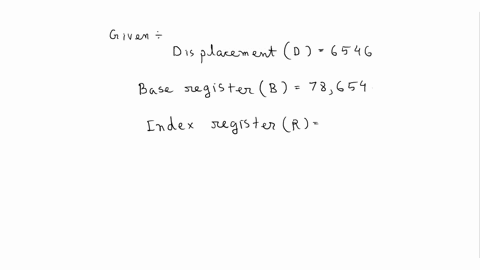 Given ÷
Displacement (D) = 6546
Base register (B) = 78,654
Index register (R) =